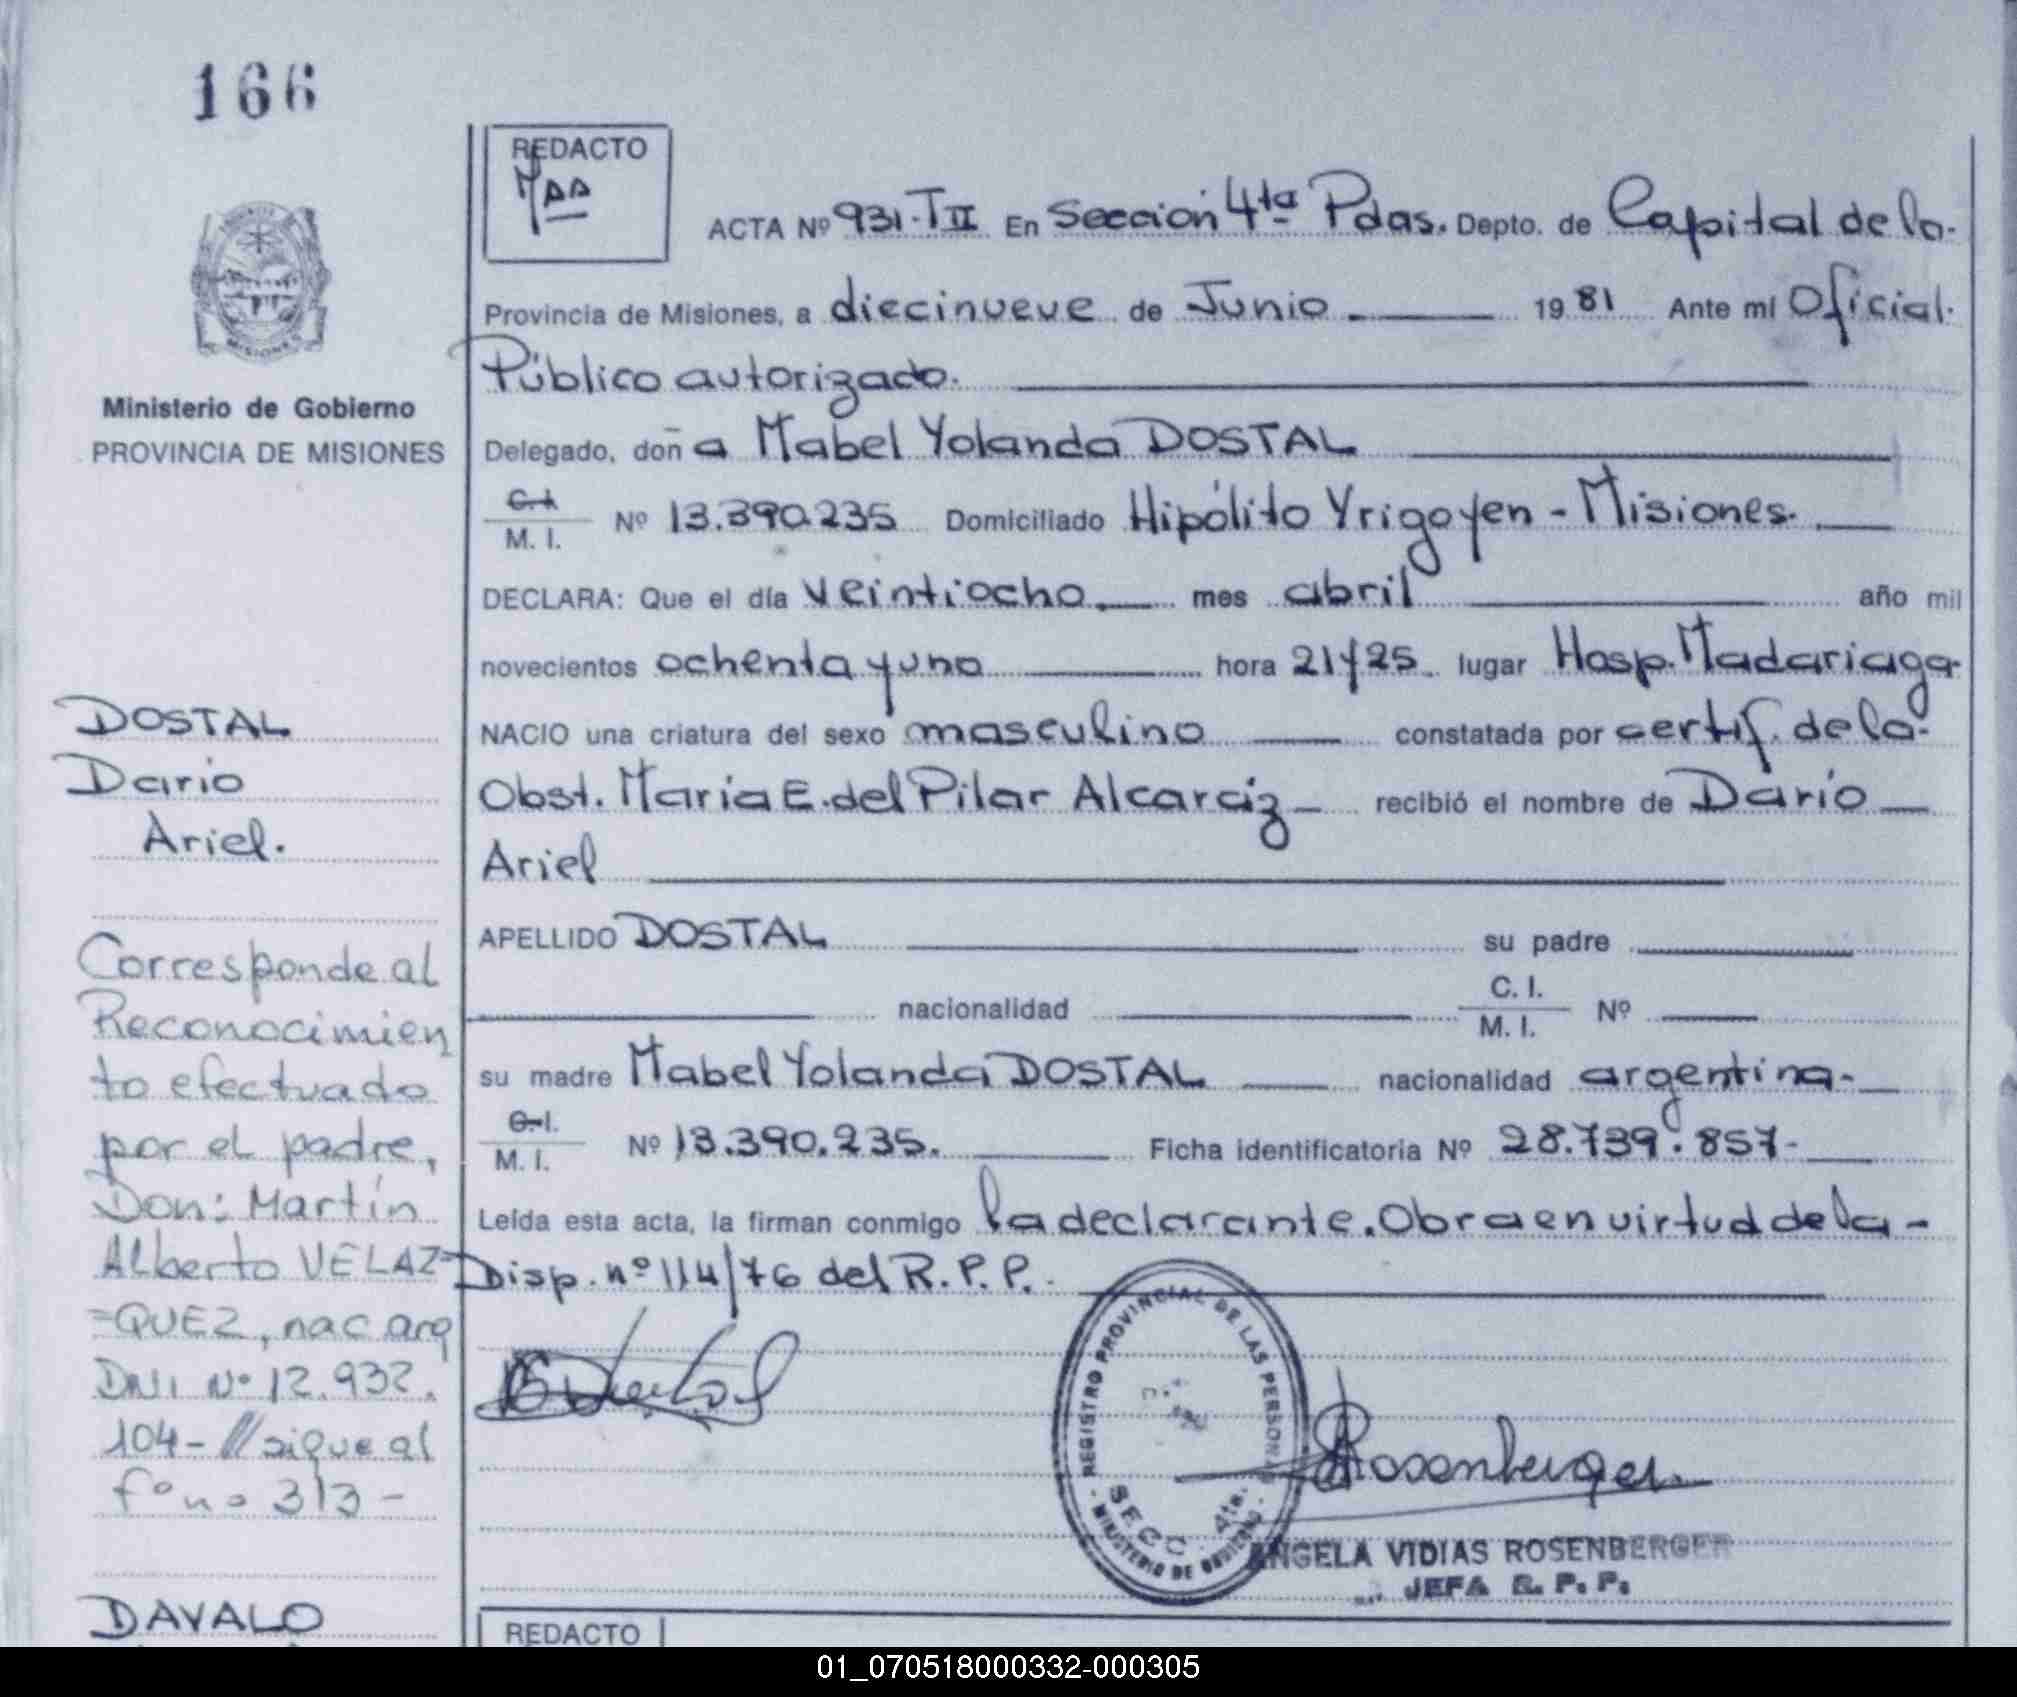 166
REDACTO
ACTA Nº 931-TII En Sección 4ta Pdas. Depto. de Capital de la-
Provincia de Misiones, a diecinueve de Junio 1981 Ante mí Oficial
Público autorizado.
Delegado, doña Mabel Yolanda DOSTAL
C.I. M. I. Nº 13.390.235 Domiciliado Hipólito Yrigoyen - Misiones.
DECLARA: Que el día veintiocho mes abril año mil
novecientos ochenta y uno hora 21y25 lugar Hosp. Madariaga
NACIO una criatura del sexo masculino constatada por certif. de la-
Obst. María E. del Pilar Alcaraz recibió el nombre de Darío
Ariel
APELLIDO DOSTAL su padre
nacionalidad C. I. M. I. Nº
su madre Mabel Yolanda DOSTAL nacionalidad argentina-
C.I. M. I. Nº 13.390.235. Ficha identificatoria Nº 28.739.857-
Leída esta acta, la firman conmigo la declarante. Obra en virtud de la-
Disp. nº 114/76 del R. P. P.
REGISTRO PROVINCIAL DE LAS PERSONAS
SECC. 4ta.
- MINISTERIO DE GOBIERNO -
Rosenberger
ANGELA VIDIAS ROSENBERGER
JEFA R. P. P.
REDACTO
MISIONES
Ministerio de Gobierno
PROVINCIA DE MISIONES
DOSTAL
Dario
Ariel.
Corresponde al
Reconocimien
to efectuado
por el padre,
Don: Martín
Alberto VELAZ=
=QUEZ, nac arg
DNI Nº 12.932.
104- // sigue al
fº nº 313-
DAVALO
01_070518000332-000305